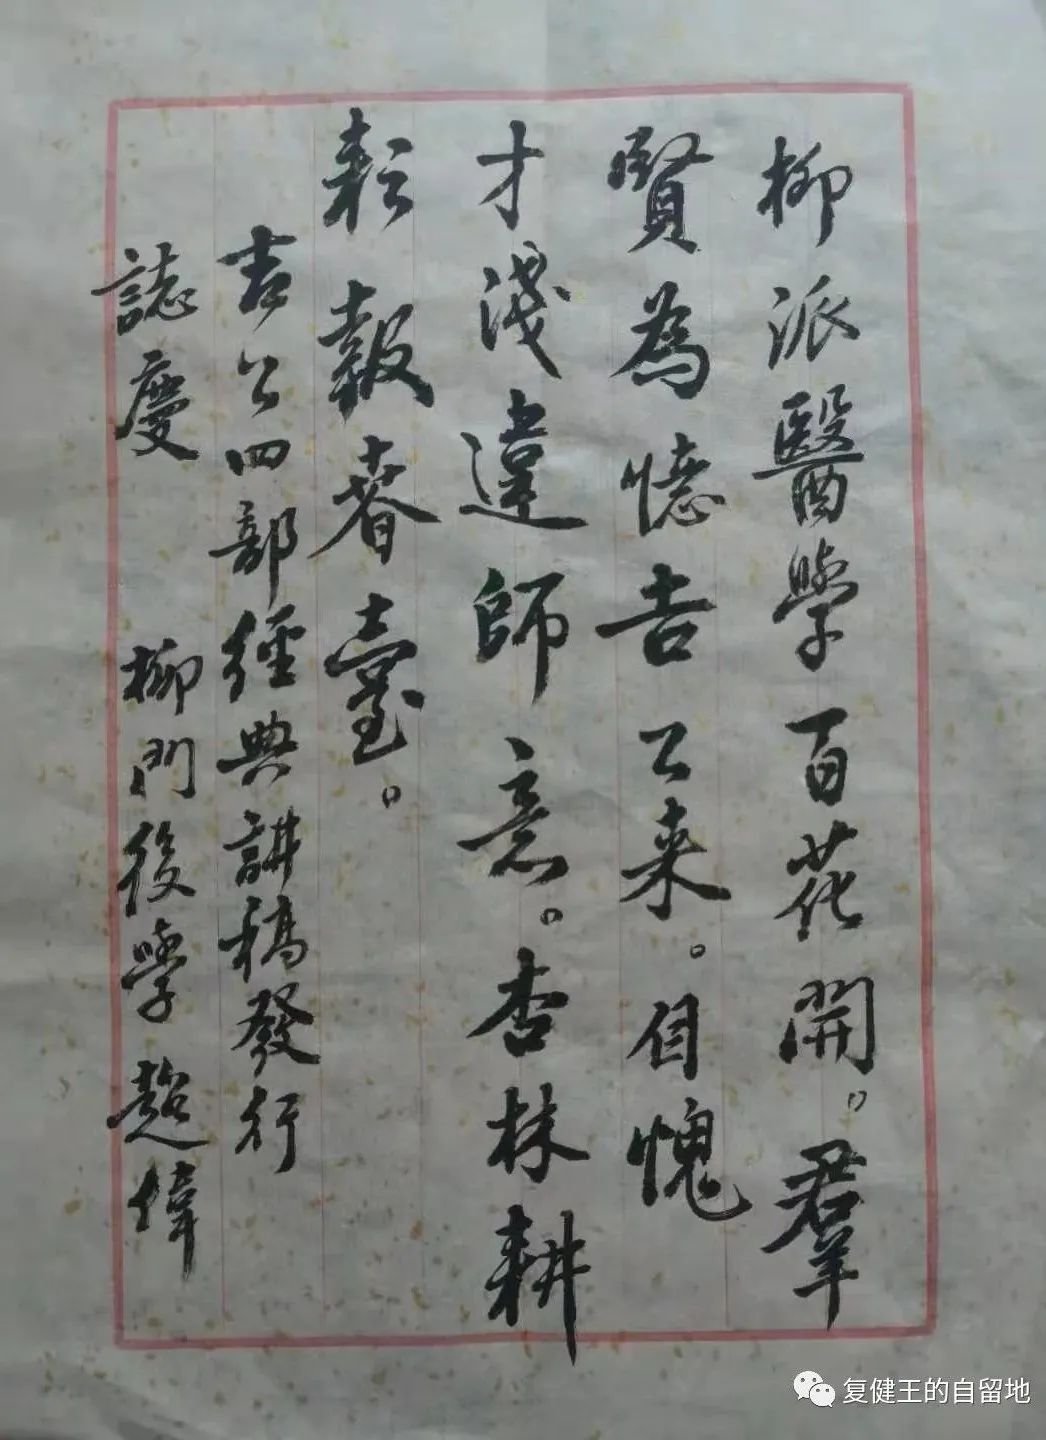 柳派醫學百花開。羣
賢為憶吉公来。自愧
才淺違師意。杏林耕
耘報春臺。
吉公四部經典講稿發行
誌慶 柳門後學趙偉
复健王的自留地